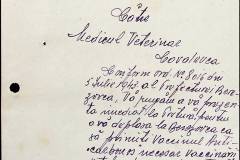 Către
Medicul Veterinar
Covalevca
Conform ord. No. 8016 din
5 Iulie 1943 al Prefecturii Bere-
zovca, Vă rugăm a vă prezen-
ta imediat la Pretură pentru
a vă deplasa la Berezovca ca
să primiți Vaccinul Anti-
necesar Vaccinăm